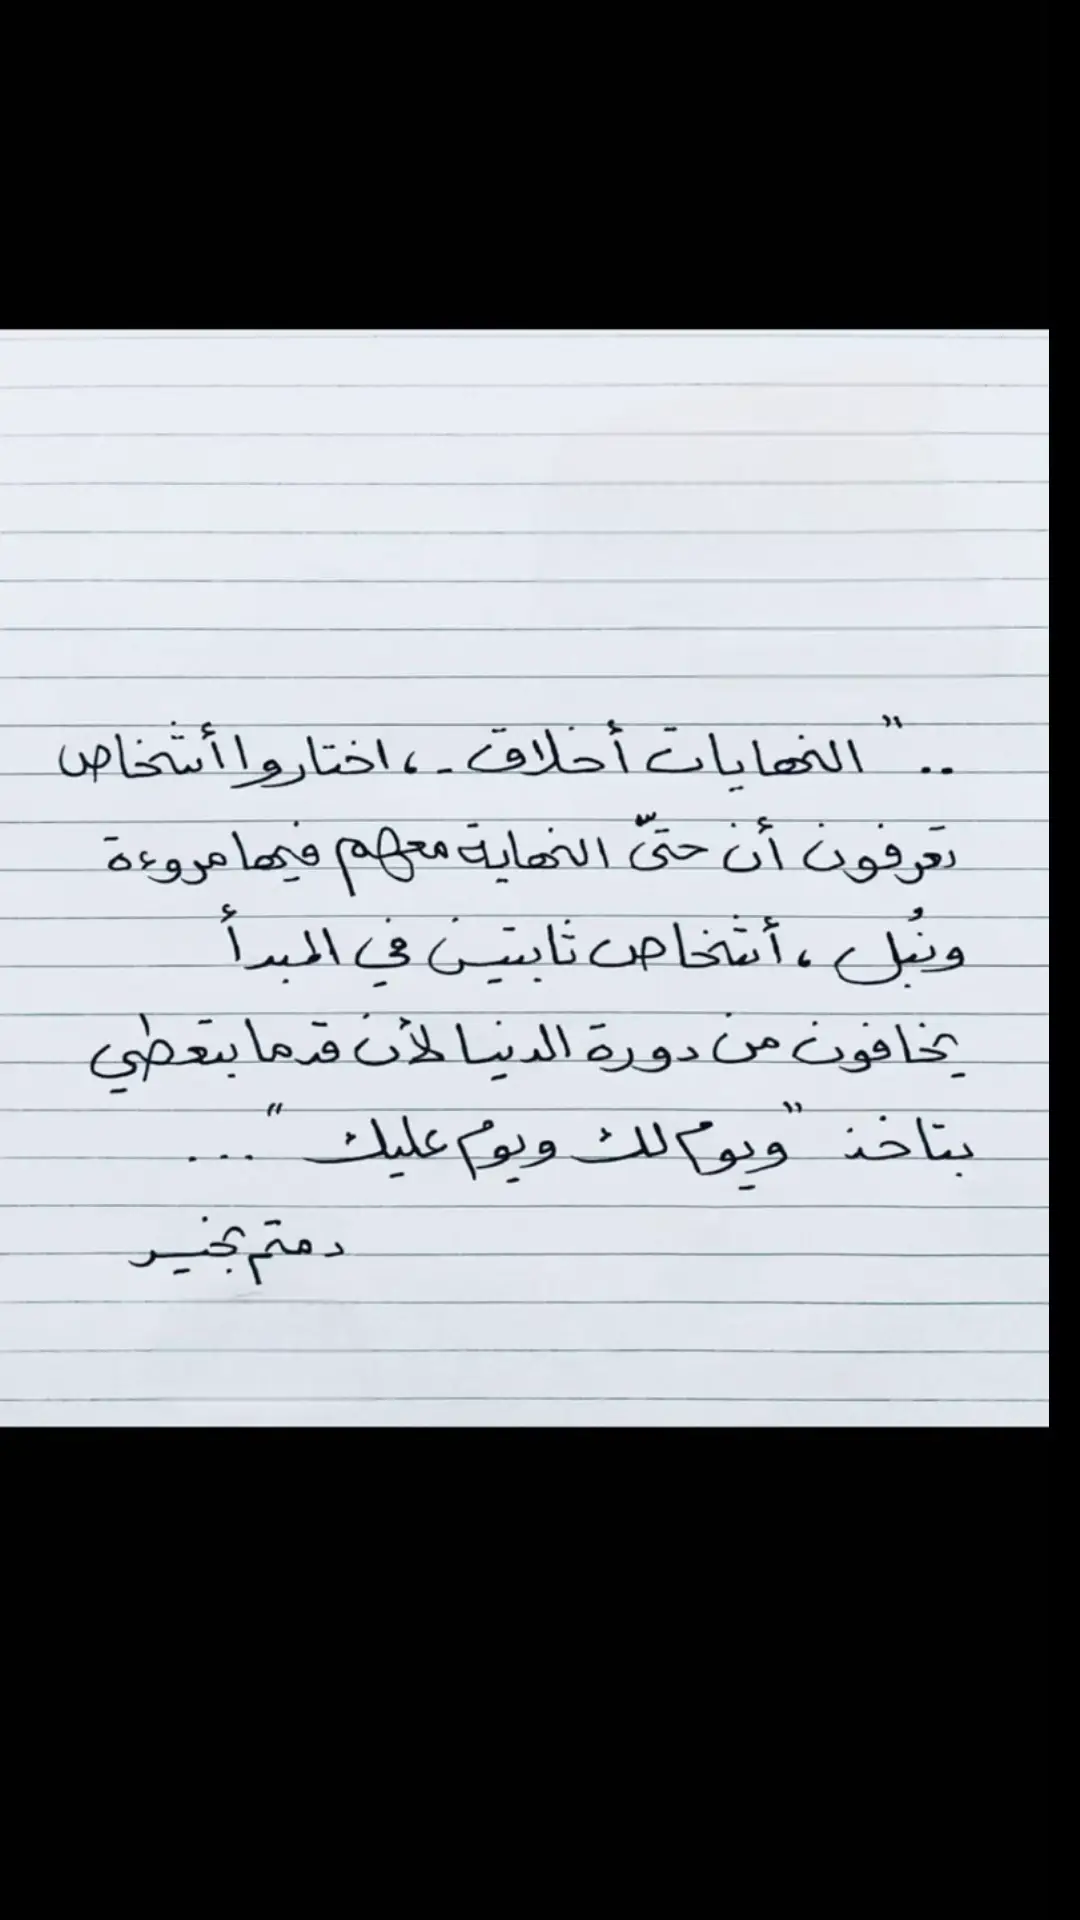 .. " النهايات أخلاق -، اختاروا أشخاص
تعرفون أن حتىّ النهاية معهم فيها مروءة
ونُبل ، أشخاص ثابتين في المبدأ
يخافون من دورة الدنيا لأن قد ما بتعطي
بتاخذ "ويوم لك ويوم عليك " ...
دمتم بخير